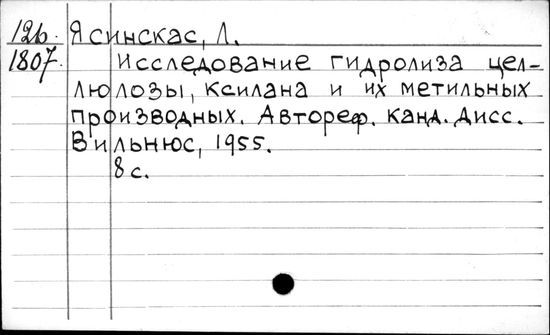 12б. Ясинскас, Л.
1807. Исследование гидролиза цел-
люлозы, ксилана и их метильных
производных. Автореф. канд. дисс.
Вильнюс, 1955.
8 с.